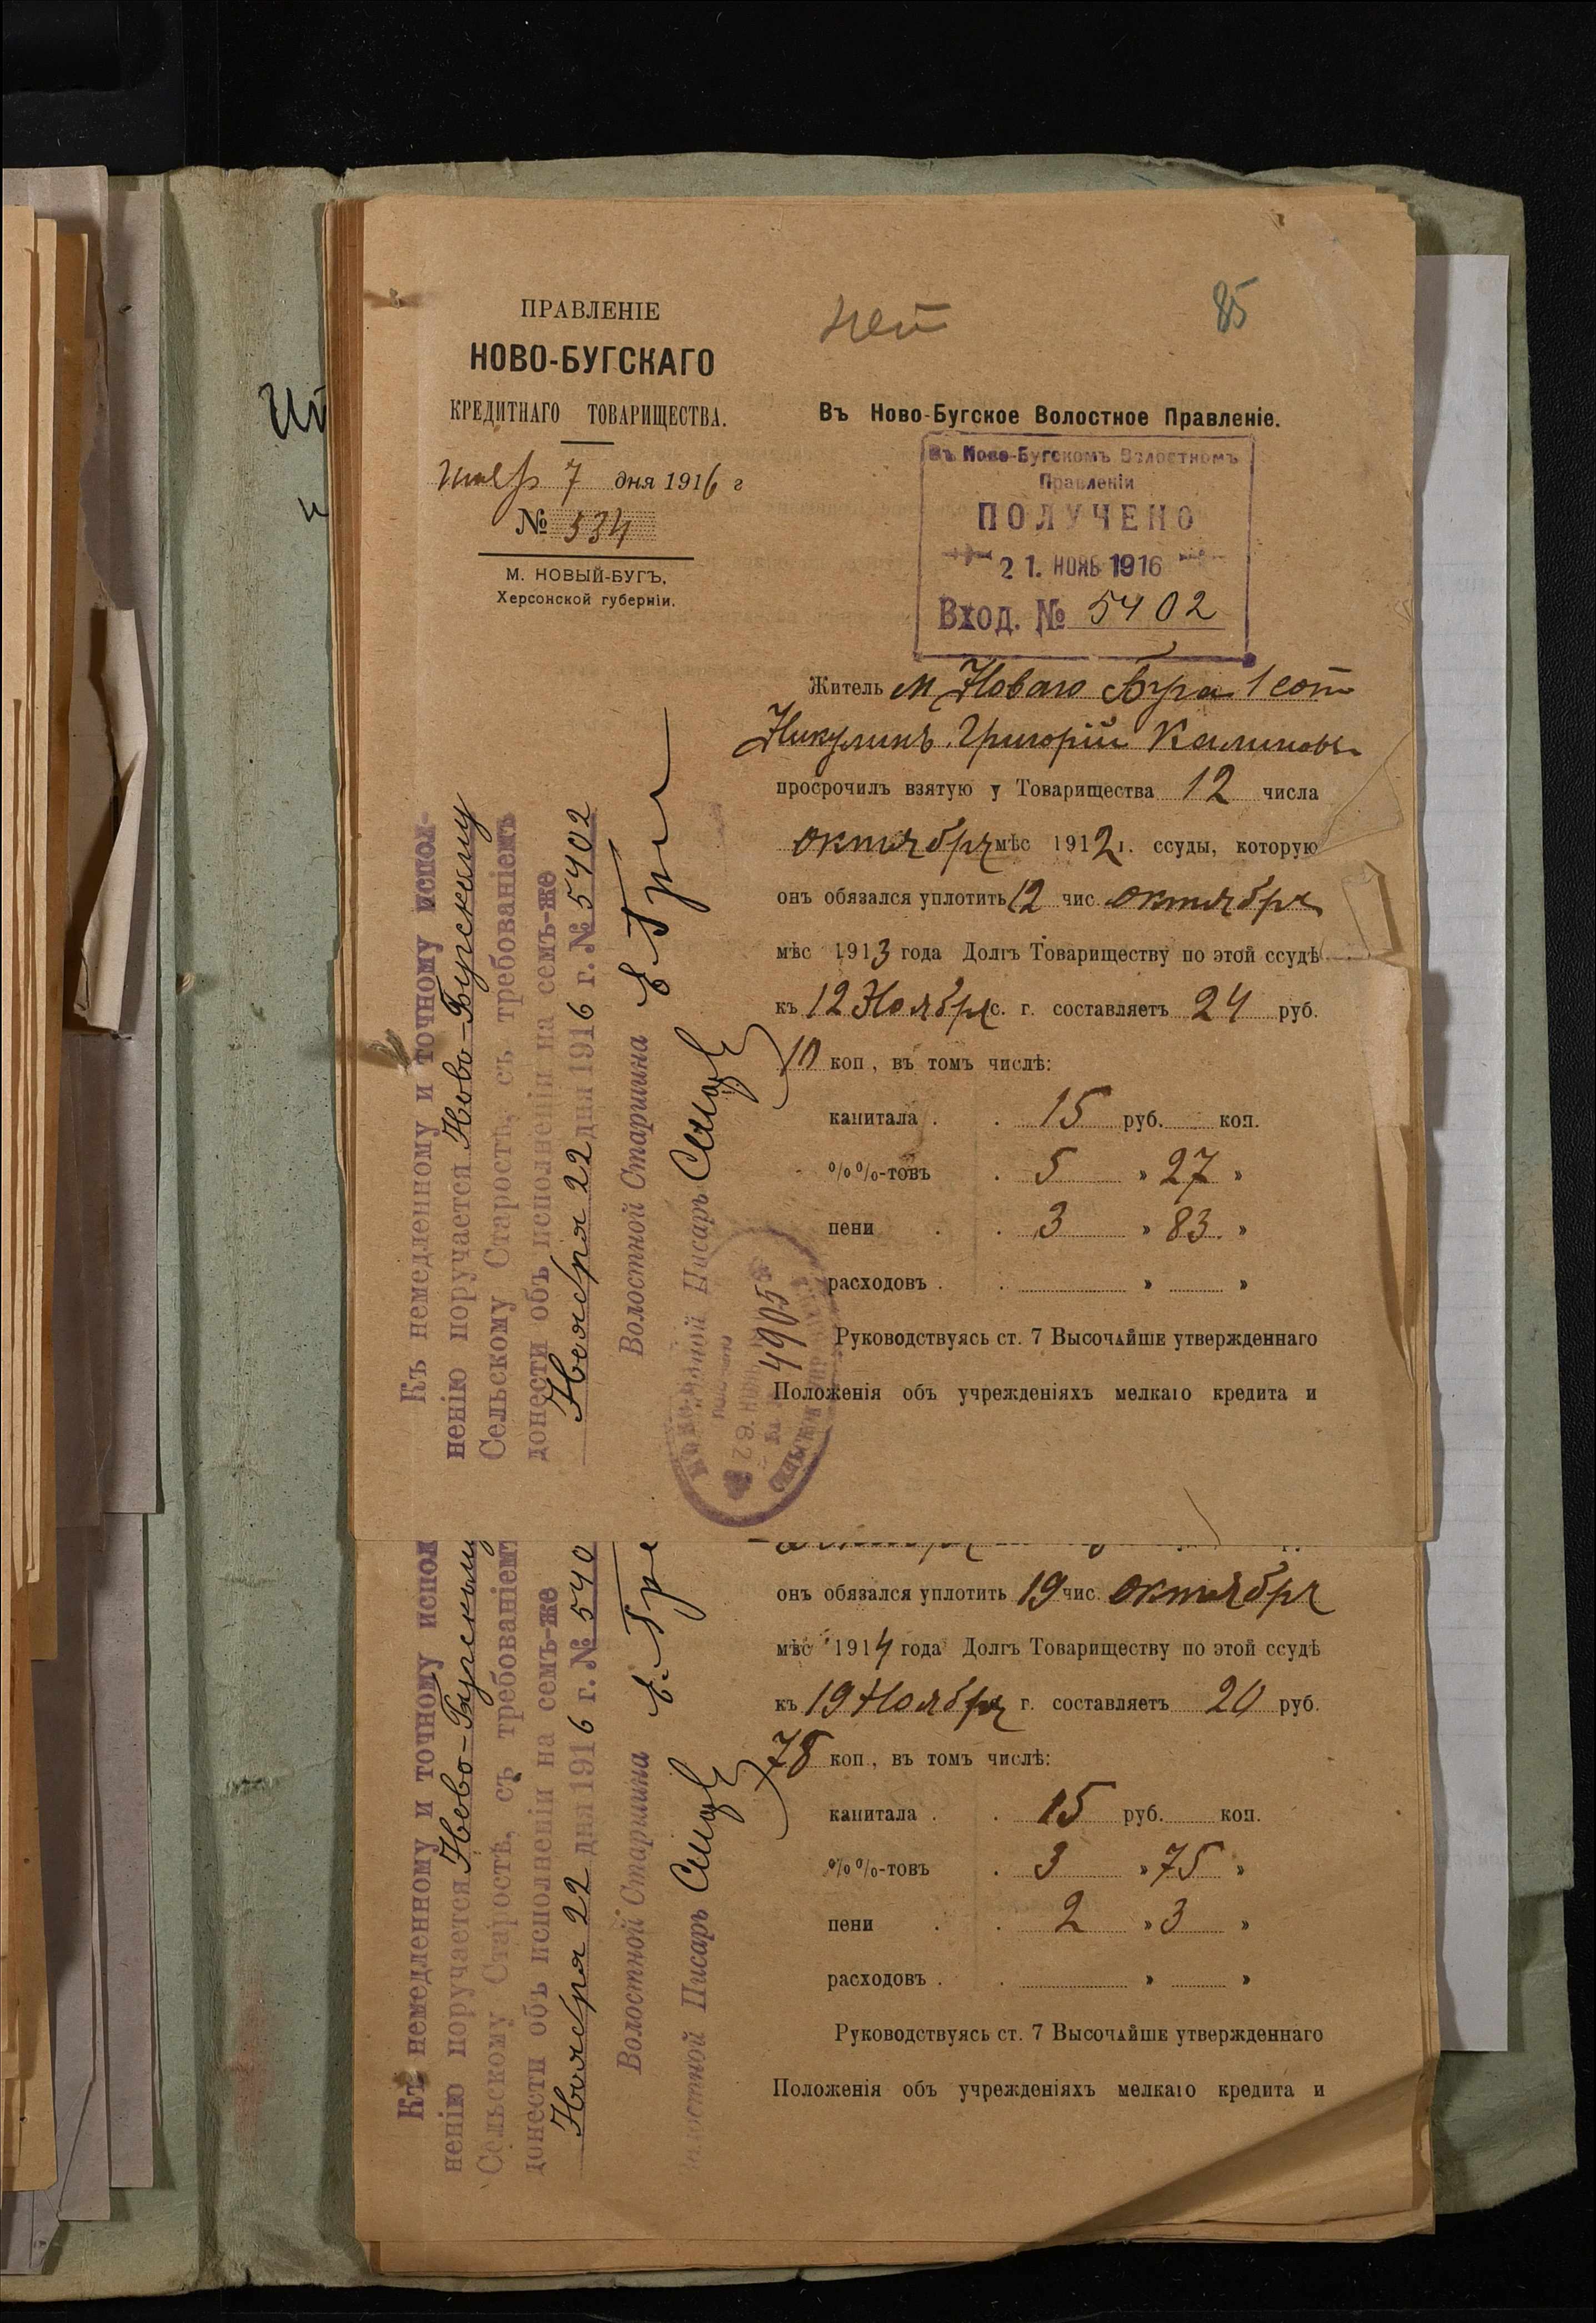 нет
85
ПРАВЛЕНІЕ
НОВО-БУГСКАГО
КРЕДИТНАГО ТОВАРИЩЕСТВА.
7 дня 1916 г
№ 534
М. НОВЫЙ-БУГЪ,
Херсонской губерніи.
Въ Ново-Бугское Волостное Правленіе.
Въ Ново-Бугскомъ Волостномъ
Правленіи
ПОЛУЧЕНО
21. НОЯБ 1916
Вход. № 5402
Житель м Новаго Буга 1 сот
Никулинъ Григорій Калиновъ
просрочилъ взятую у Товарищества 12 числа
октября мѣс 1912 г. ссуды, которую
онъ обязался уплотить 12 чис. октября
мѣс 1913 года Долгъ Товариществу по этой ссудѣ
къ 12 Ноября с. г. составляетъ 24 руб.
10 коп, въ томъ числѣ:
капитала . . 15 руб. коп.
%%-товъ . 5 » 27 »
пени . . 3 » 83. »
расходовъ . . » »
Руководствуясь ст. 7 Высочайше утвержденнаго
Положенія объ учрежденіяхъ мелкаго кредита и
Къ немедленному и точному испол-
ненію поручается Ново-Бугскому
Сельскому Старостѣ, съ требованіемъ
донести объ исполненіи на семъ-же
Ноября 22 дня 1916 г. № 5402
Волостной Старшина
Волостной Писарь
4905
онъ обязался уплотить 19 чис. октября
мѣс 1914 года Долгъ Товариществу по этой ссудѣ
къ 19 Ноября г. составляетъ 20 руб.
78 коп, въ томъ числѣ:
капитала . . 15 руб. коп.
%%-товъ . 3 » 75 »
пени . . 2 » 3 »
расходовъ . . » »
Руководствуясь ст. 7 Высочайше утвержденнаго
Положенія объ учрежденіяхъ мелкаго кредита и
Къ немедленному и точному испол
ненію поручается Ново-Бугскому
Сельскому Старостѣ, съ требованіем
донести объ исполненіи на семъ-же
Ноября 22 дня 1916 г. № 540
Волостной Старшина
Волостной Писарь